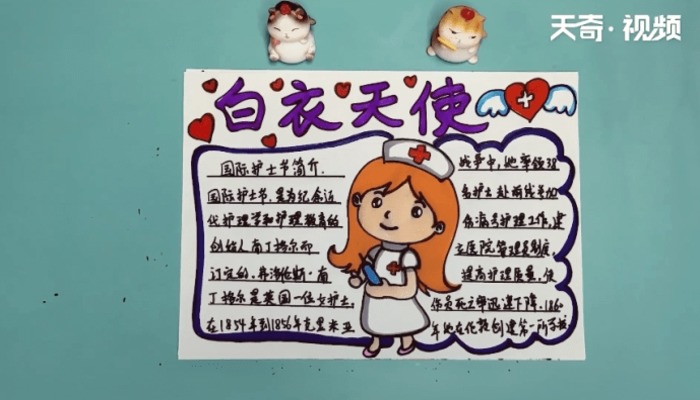 天奇·视频
白衣天使
国际护士节简介.
国际护士节,是为纪念近
代护理学和护理教育的
创始人南丁格尔而
订定的.弗洛伦斯·南
丁格尔是英国一位女护士.
在1854年到1856年克里米亚
战争中,她率领38
名护士赴前线参加
伤病员护理工作,建
立医院管理制度,
提高护理质量,使
伤员死亡率迅速下降.186
年她在伦敦创建第一所学校